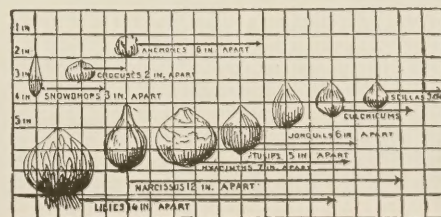 1 IN
2 IN
ANEMONES 6 IN. APART
3 IN
CROCUSES 2 IN. APART
4 IN
SNOWDROPS 3 IN. APART
SCILLAS
COLCHICUMS
5 IN
JONQUILS 6 IN APART
TULIPS 5 IN APART
HYACINTHS 7 IN. APART
NARCISSUS 12 IN. APART
LILIES IN APART